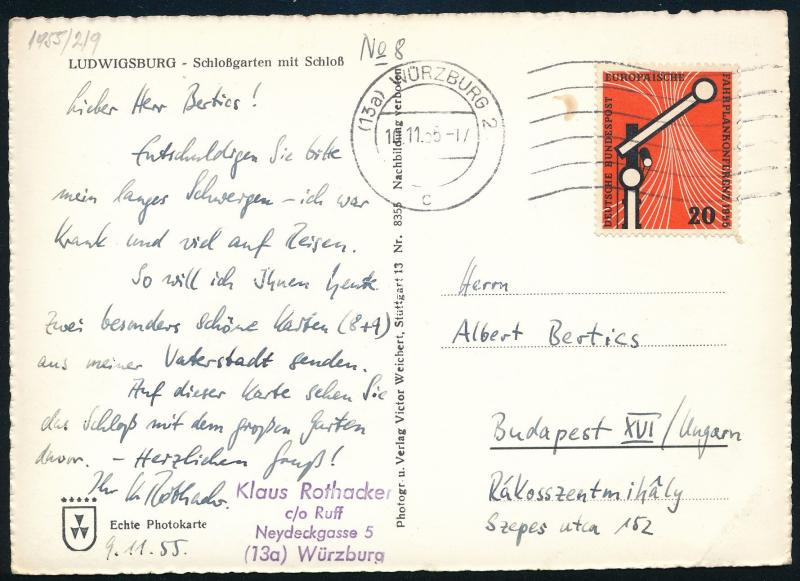 1955/2/9
LUDWIGSBURG - Schloßgarten mit Schloß
No 8
Lieber Herr Bertics!
Entschuldigen Sie bitte
mein langes Schweigen - ich war
krank und viel auf Reisen.
So will ich Ihnen heute
zwei besonders schöne Karten (8+9)
aus meiner Vaterstadt senden.
Auf dieser Karte sehen Sie
das Schloß mit dem großen Garten
davor. - Herzlichen Gruß!
Ihr K. Rothacker
Klaus Rothacker
c/o Ruff
Neydeckgasse 5
(13a) Würzburg
Echte Photokarte
9.11.55.
Photogr. u. Verlag Victor Weichert, Stuttgart 13 Nr. 8355 Nachbildung verboten
(13a) WÜRZBURG 2
10.11.55-17
c
EUROPÄISCHE
FAHRPLANKONFERENZ 1955
DEUTSCHE BUNDESPOST
20
Herrn
Albert Bertics
Budapest XVI / Ungarn
Rákosszentmihály
Szepes utca 152